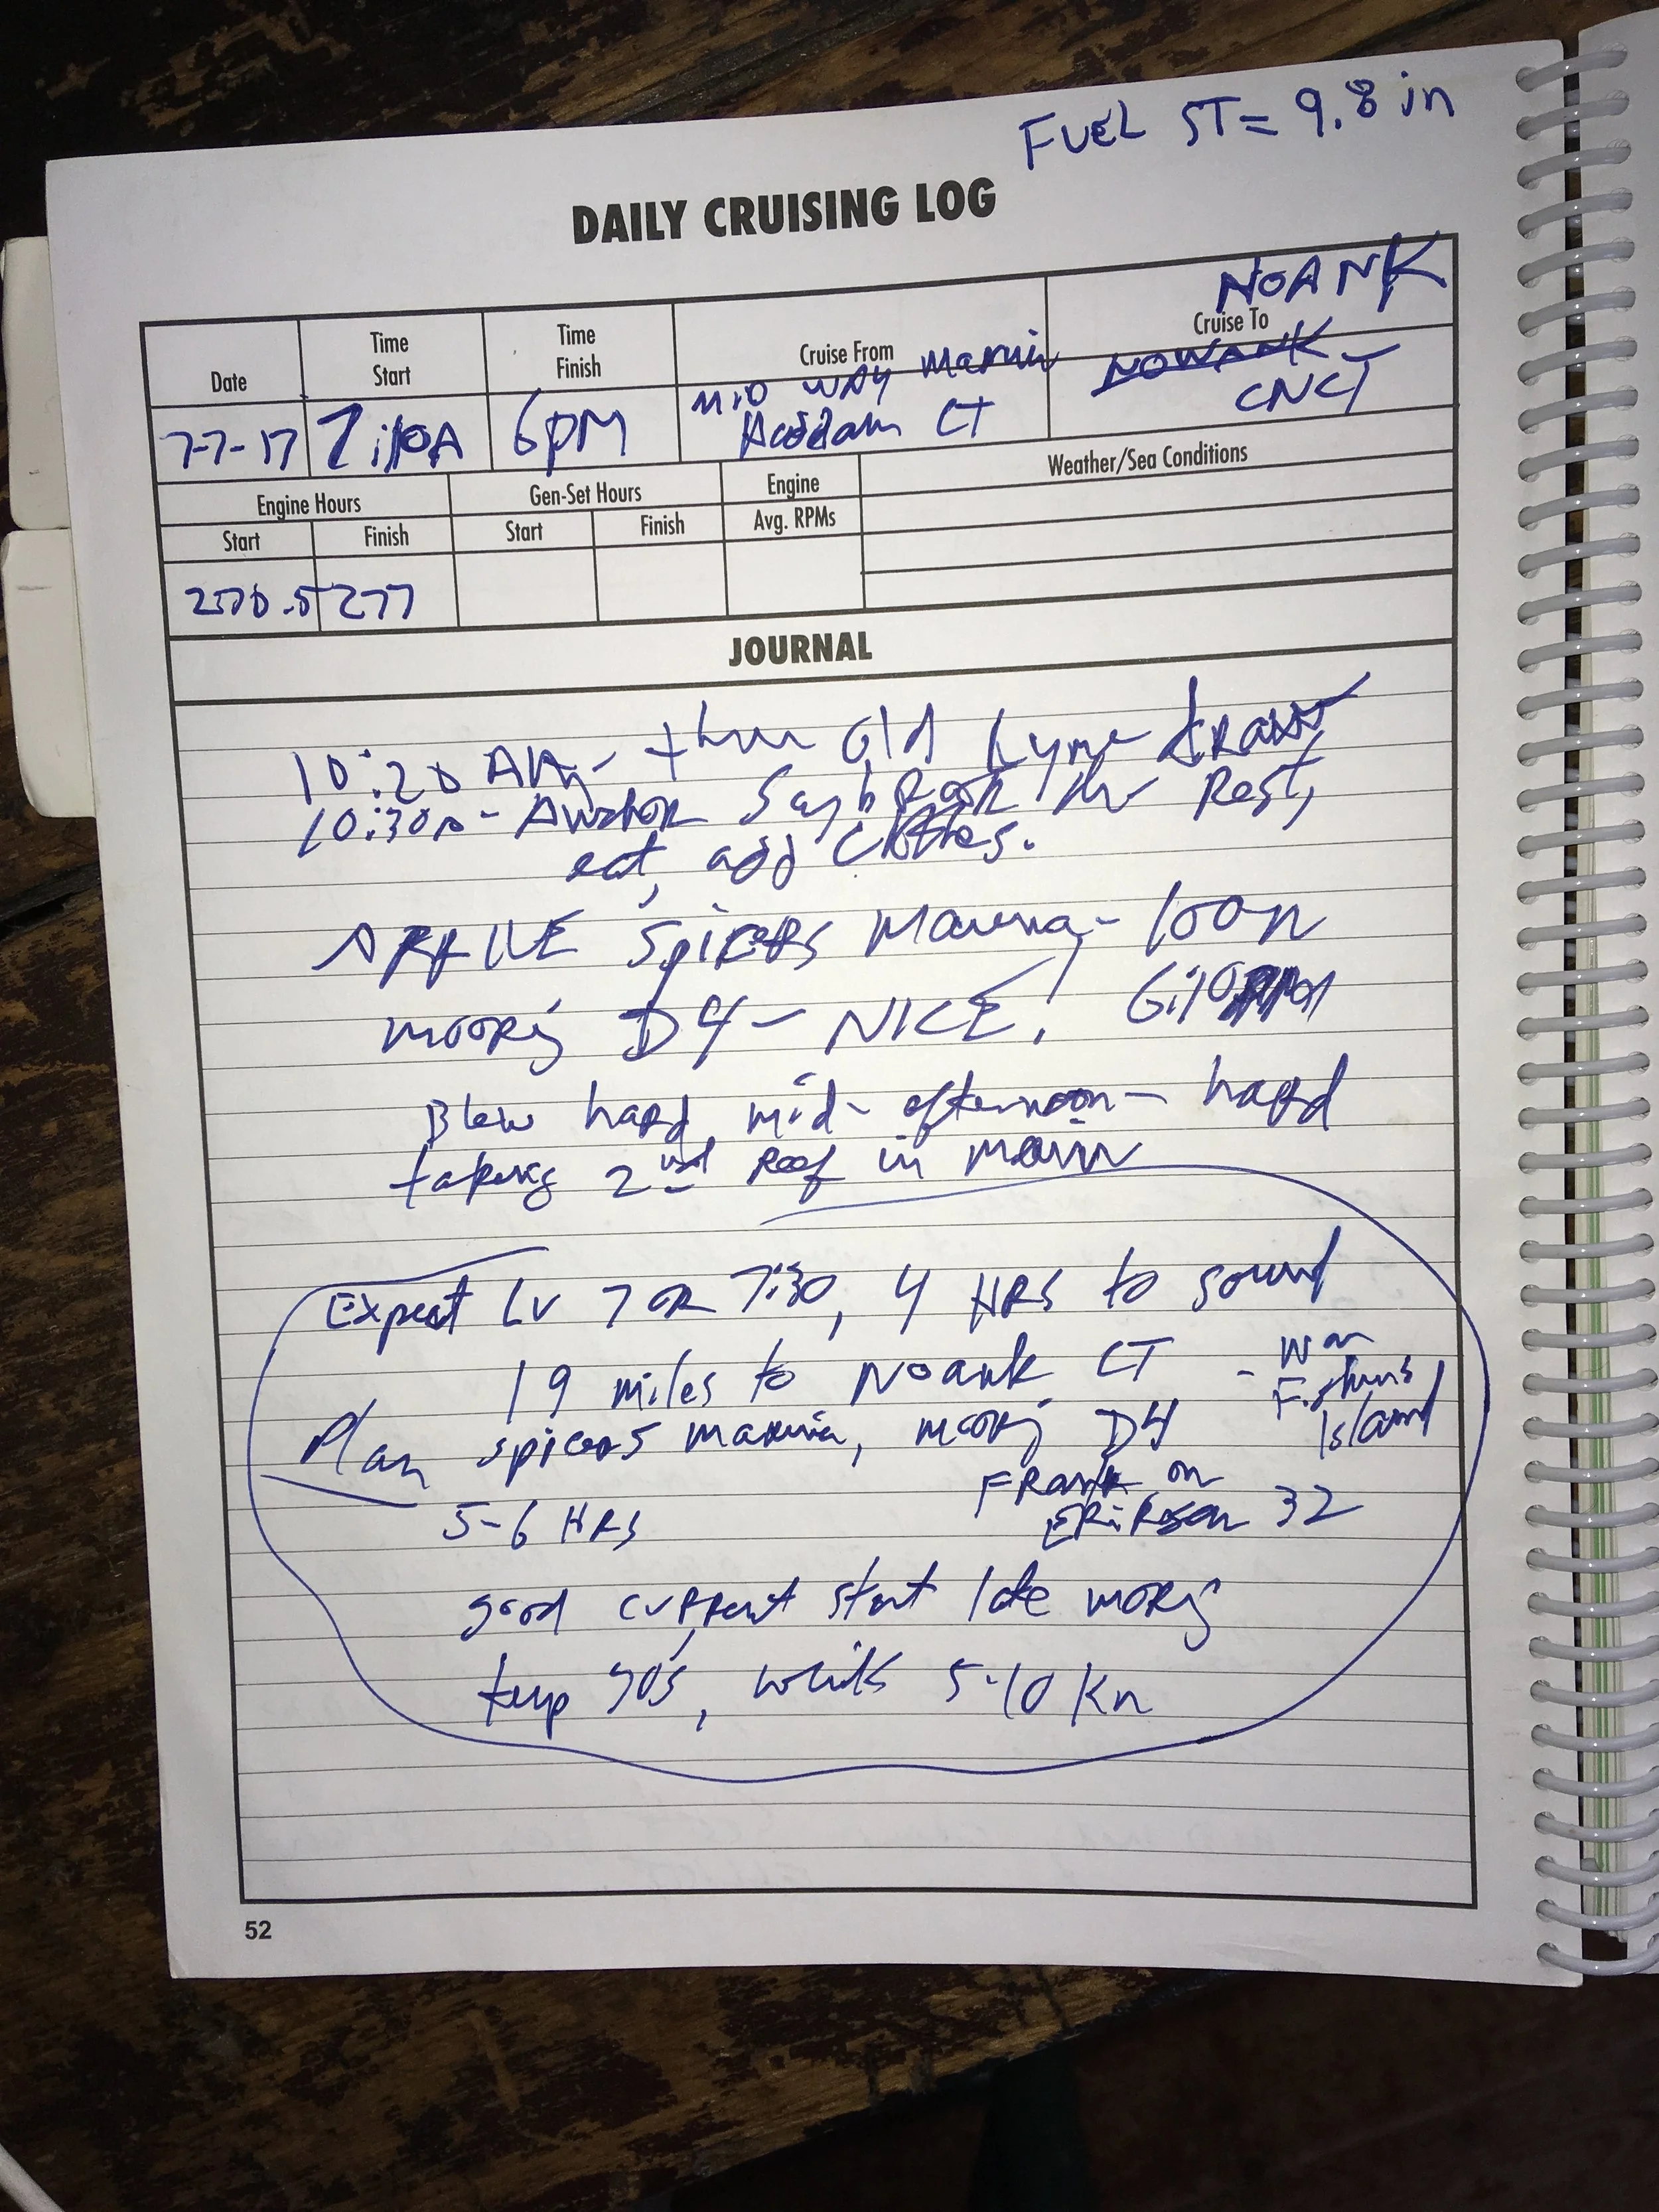 FUEL ST = 9.8 in
DAILY CRUISING LOG
NOANK
Date
Time Start
Time Finish
Cruise From
Cruise To
7-7-17
6pm
MID WAY Marnia
Haddam CT
NOWANK
CNCT
Engine Hours
Gen-Set Hours
Engine
Weather/Sea Conditions
Start
Finish
Start
Finish
Avg. RPMs
277
JOURNAL
10:20 AM - thru Old Lyme
10:30 - Anchor Saybrook for Rest,
eat, add clothes.
ARRIVE Spicers Marina -
mooring D4 - NICE!
Blew hard mid-afternoon - hard
taking 2nd Reef in main
Expect Lv 7 or 7:30, 4 HRS to sound
19 miles to Noank CT - W on
Fishers
Island
Plan spicers marina, mooring D4
5-6 HRS
Frank on
Erikson 32
good current start late morng
temp 70's, winds 5-10 Kn
52